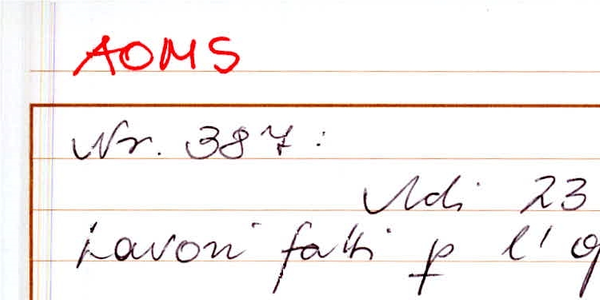 AOMS
Nr. 387:
Adi 23
Lavori fatti p l'